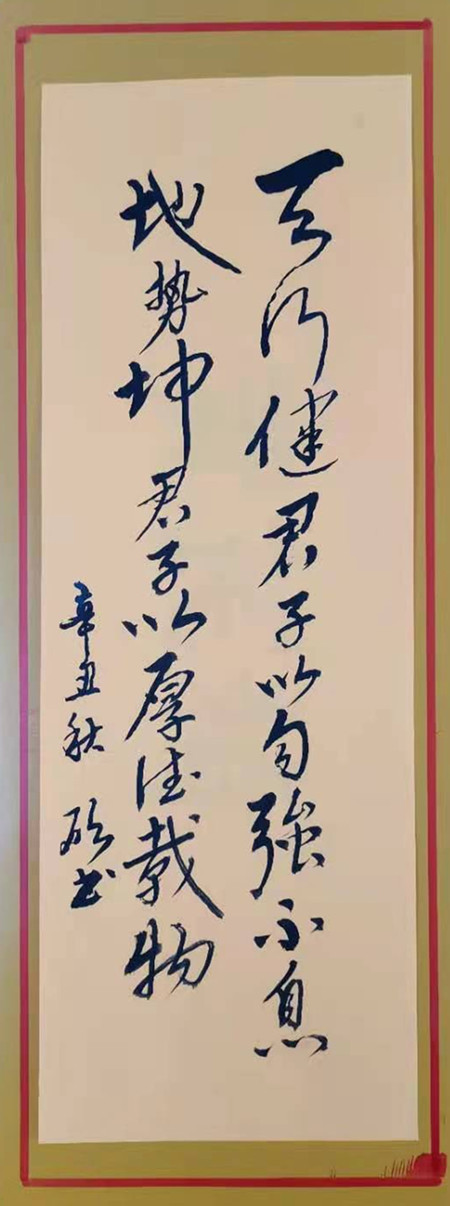 天行健君子以自強不息
地势坤君子以厚德载物
辛丑秋 书